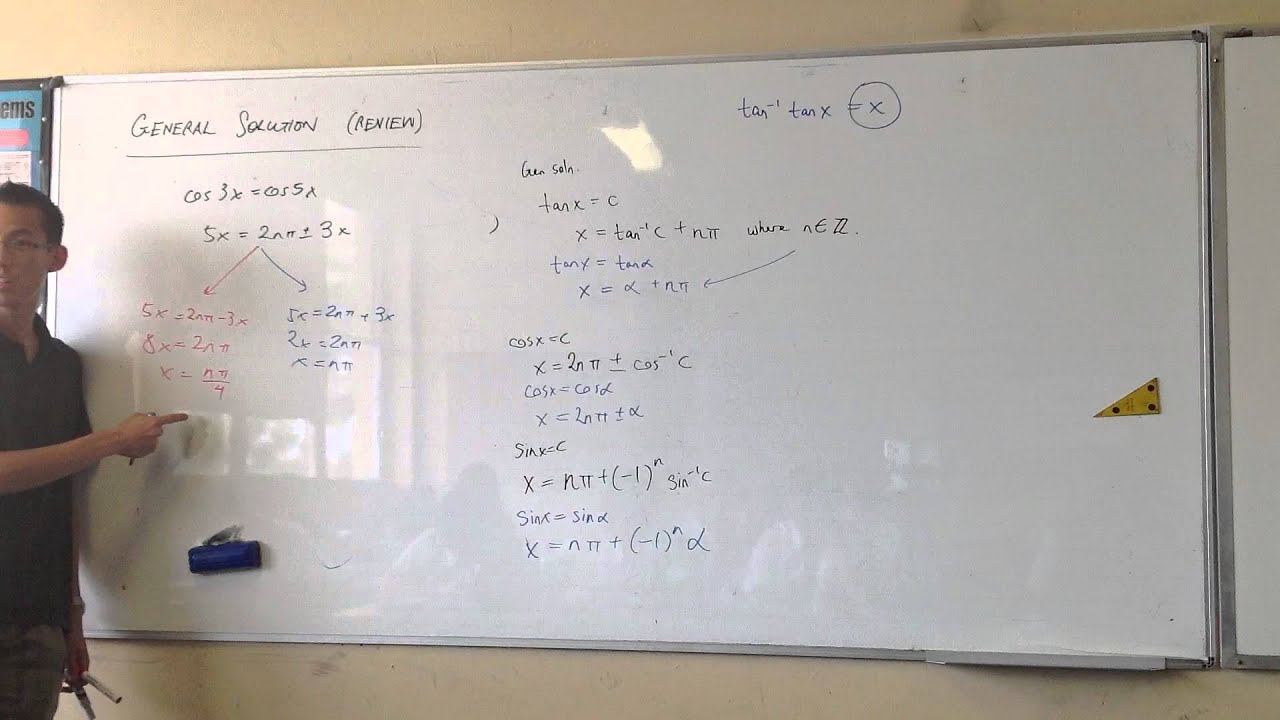 ems
GENERAL SOLUTION (REVIEW)
cos 3x = cos 5x
5x = 2nπ ± 3x
5x = 2nπ - 3x
8x = 2nπ
x = nπ/4
5x = 2nπ + 3x
2x = 2nπ
x = nπ
tan⁻¹ tan x = x
Gen soln.
tan x = c
x = tan⁻¹ c + nπ where n ∈ ℤ.
tan x = tan α
x = α + nπ
cos x = c
x = 2nπ ± cos⁻¹ c
cos x = cos α
x = 2nπ ± α
sin x = c
x = nπ + (-1)ⁿ sin⁻¹ c
sin x = sin α
x = nπ + (-1)ⁿ α